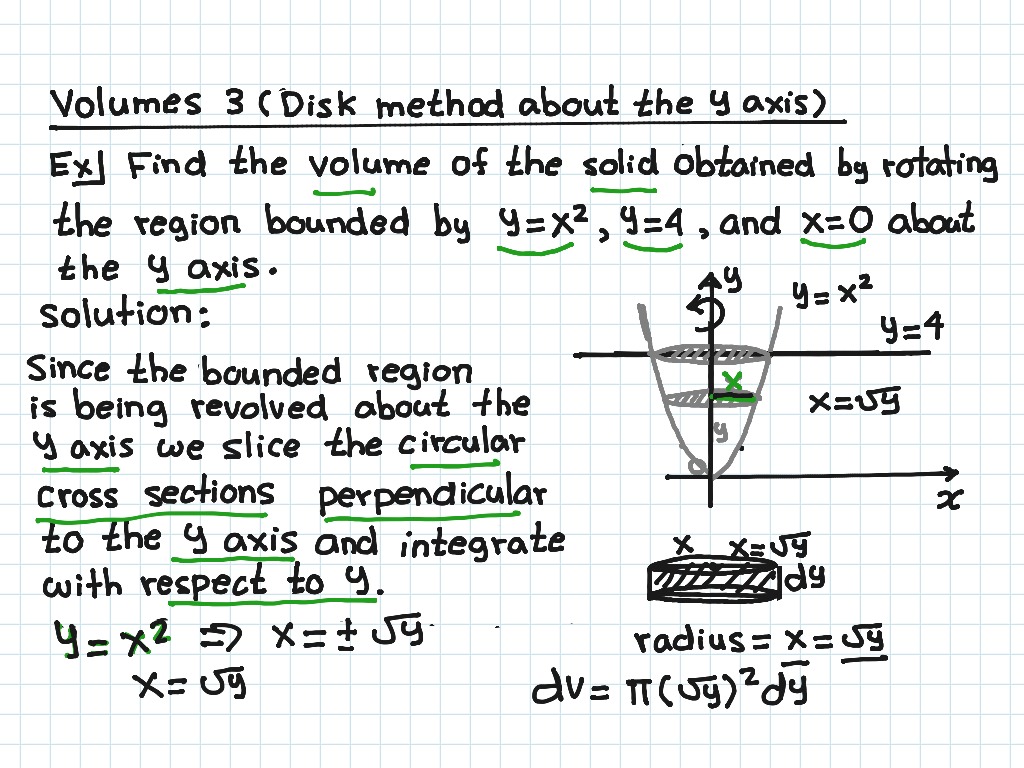 Volumes 3 (Disk method about the y axis)
Ex] Find the volume of the solid obtained by rotating
the region bounded by y=x², y=4, and x=0 about
the y axis.
Solution:
Since the bounded region
is being revolved about the
y axis we slice the circular
cross sections perpendicular
to the y axis and integrate
with respect to y.
y=x² ⇒ x=±√y
x=√y
y
y=x²
y=4
x
x=√y
y
0
x
x x=√y
dy
radius=x=√y
dv=π(√y)²dy